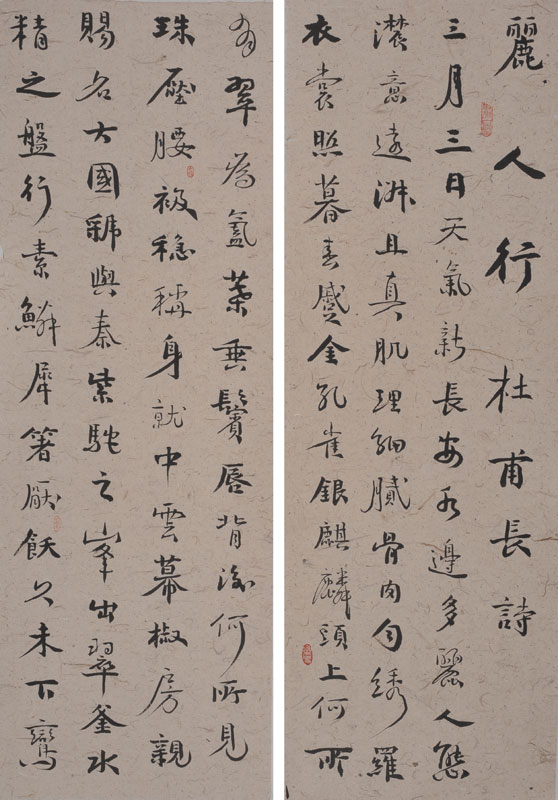 麗人行杜甫長詩
三月三日天氣新長安水邊多麗人態
濃意遠淑且真肌理細膩骨肉勻綉羅
衣裳照暮春蹙金孔雀銀麒麟頭上何所
有翠為㔩葉垂鬢唇背後何所見
珠壓腰衱穩稱身就中雲幕椒房親
賜名大國虢與秦紫駝之峯出翠釜水
精之盤行素鱗犀箸厭飫久未下鸞